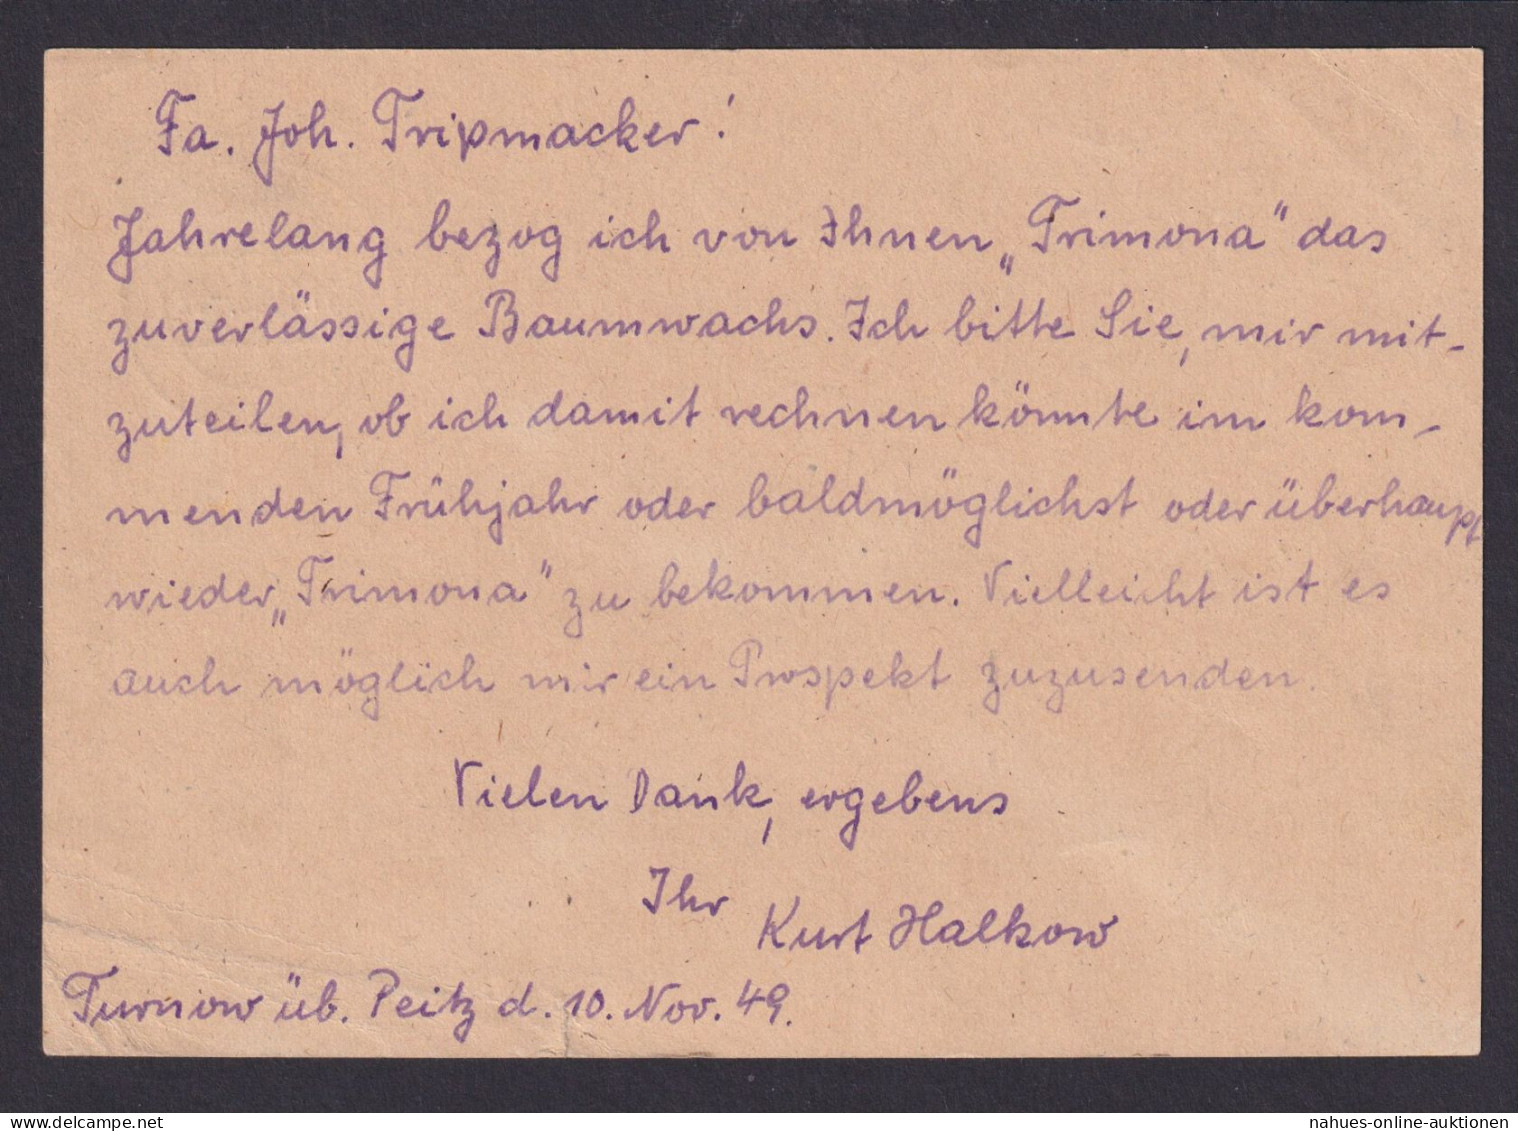 Fa. Joh. Tripmacker!
Jahrelang bezog ich von Ihnen „Trimona“ das
zuverlässige Baumwachs. Ich bitte Sie, mir mit-
zuteilen, ob ich damit rechnen könnte im kom-
menden Frühjahr oder baldmöglichst oder überhaupt
wieder „Trimona“ zu bekommen. Vielleicht ist es
auch möglich mir ein Prospekt zuzusenden.
Vielen Dank, ergebens
Ihr Kurt Halkow
Turnow üb. Peitz d. 10. Nov. 49.
nahues-online-auktionen